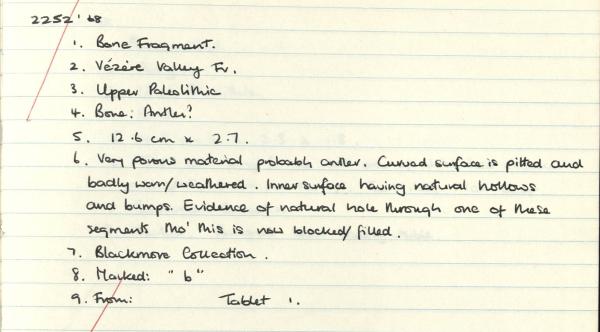 2252'68
1. Bone Fragment.
2. Vézère Valley Fr.
3. Upper Paleolithic
4. Bone: Antler?
5. 12.6 cm x 2.7.
6. Very porous material probably antler. Curved surface is pitted and
badly worn/weathered. Inner surface having natural hollows
and bumps. Evidence of natural hole through one of these
segments tho' this is now blocked/filled.
7. Blackmore Collection.
8. Marked: "b"
9. From: Tablet 1.